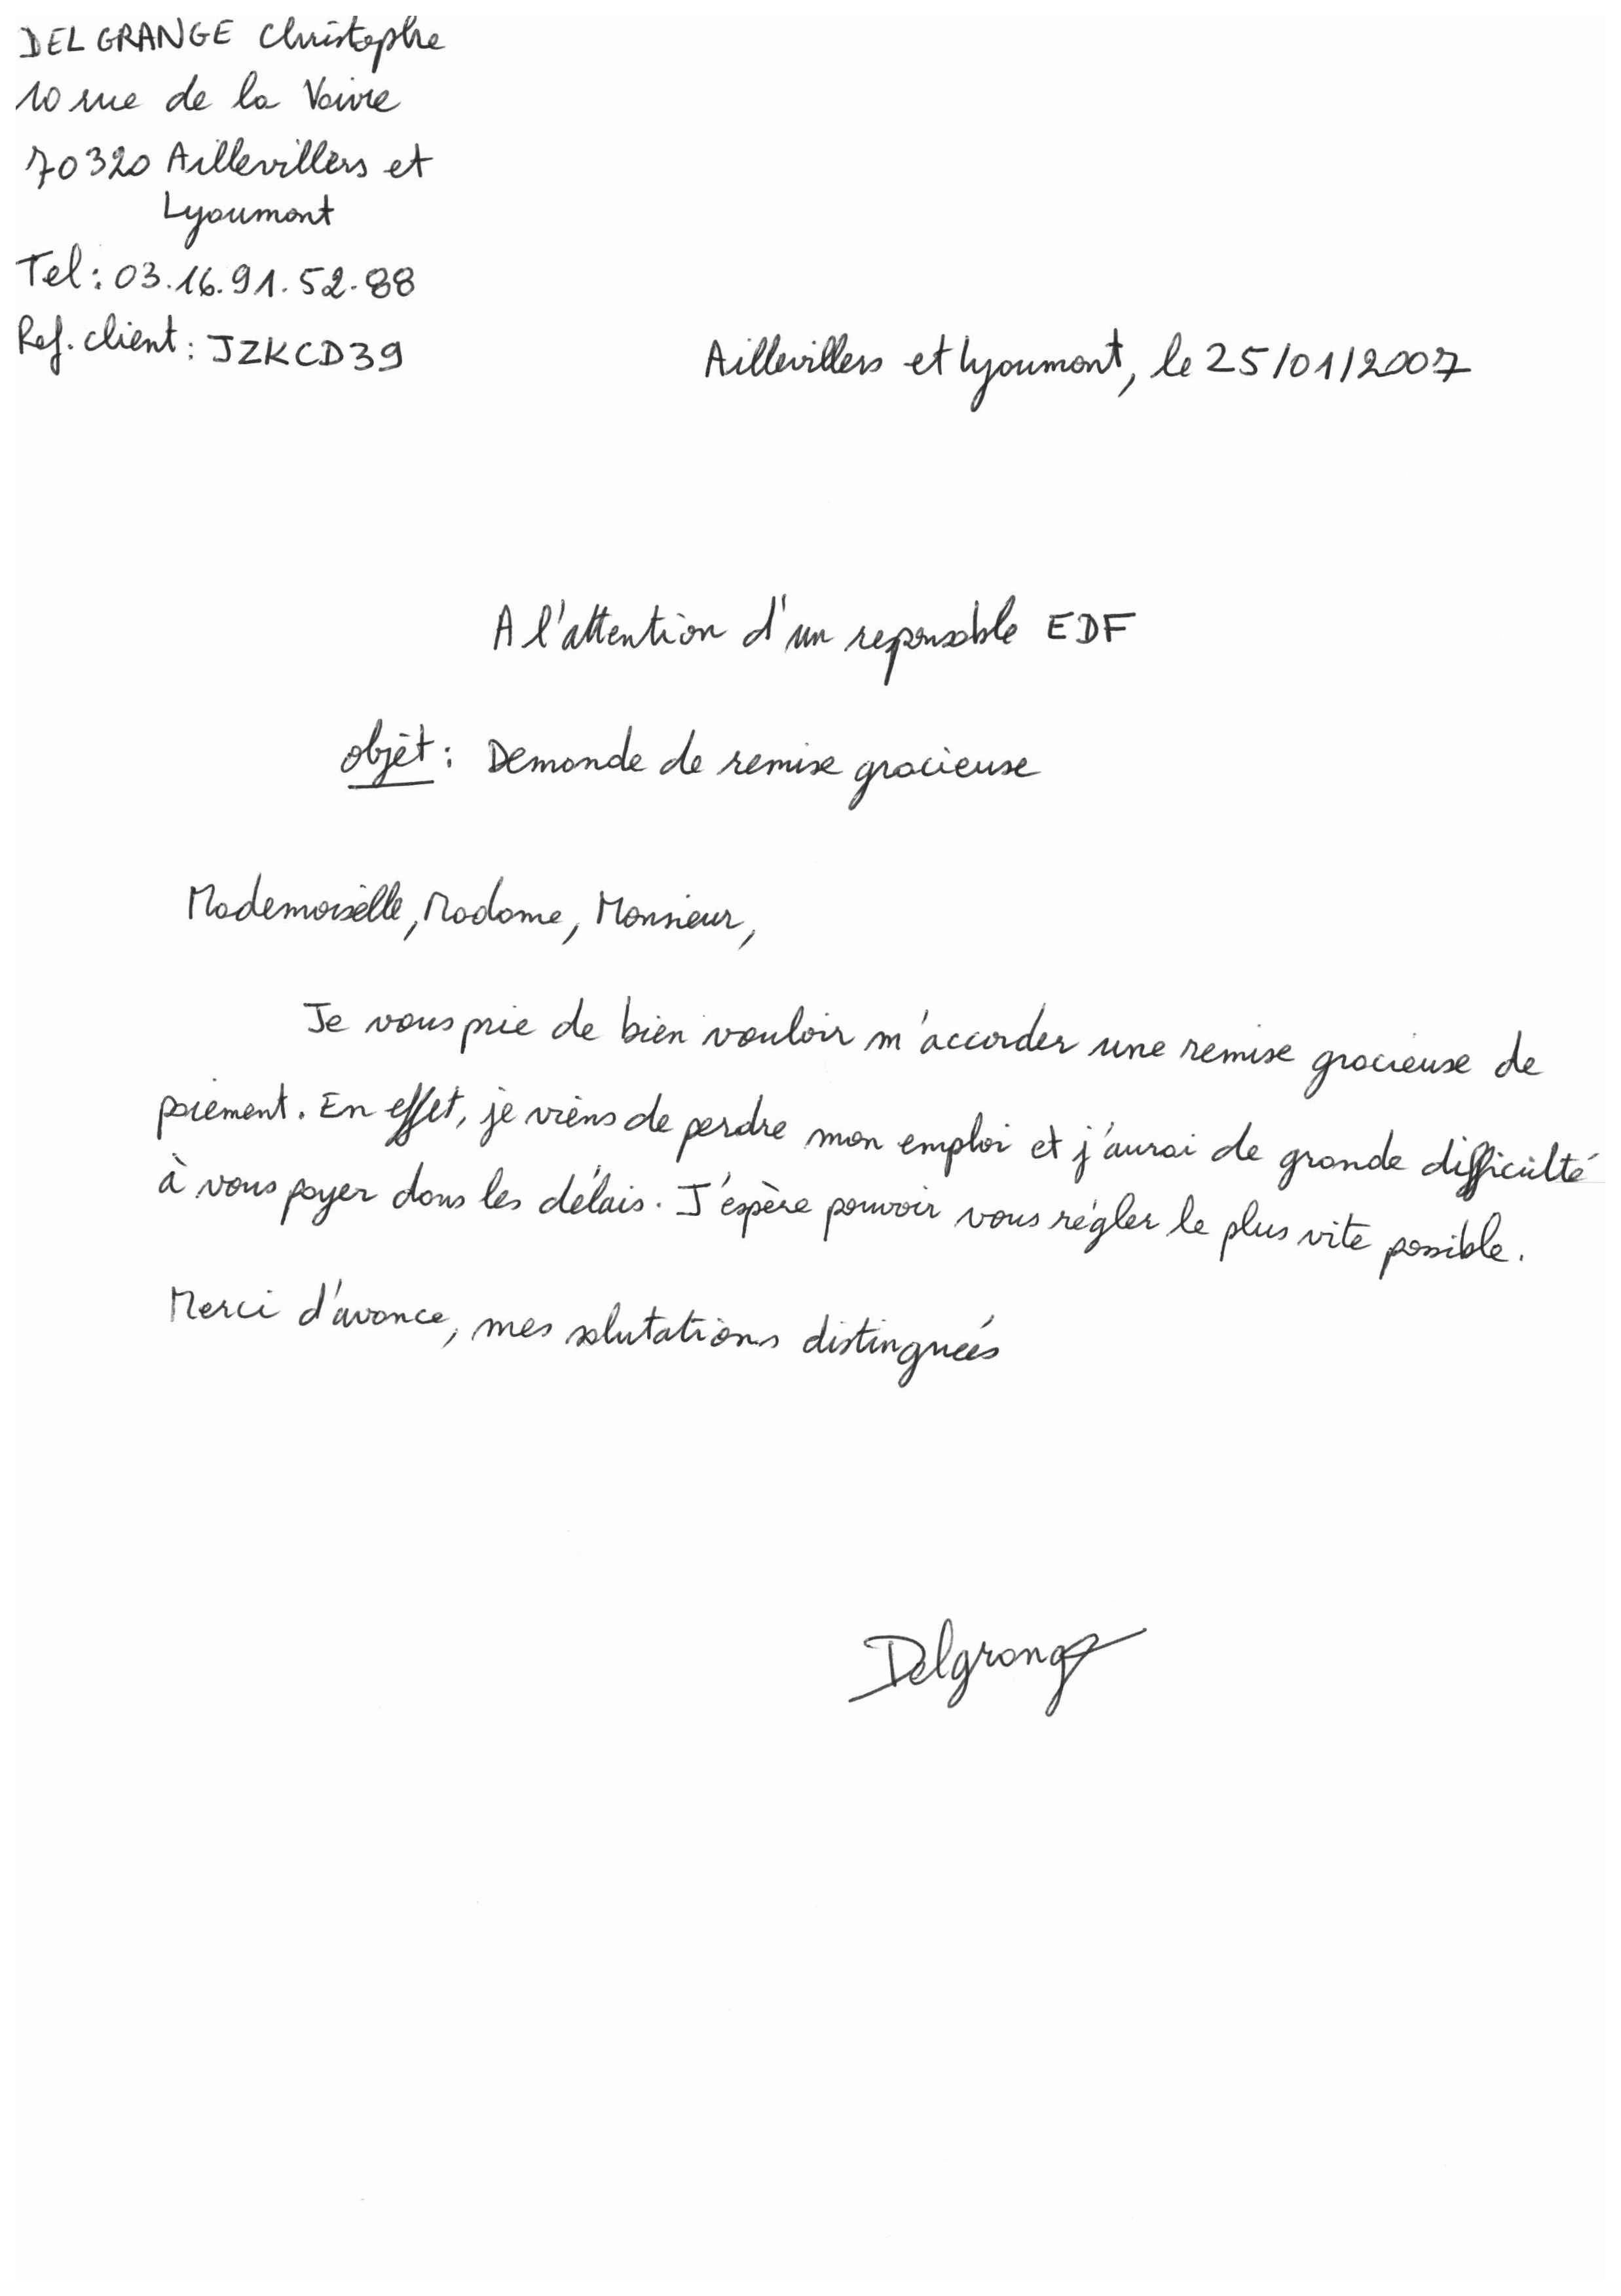 DELGRANGE Christophe
10 rue de la Voivre
70320 Aillevillers et
Lyoumont
Tel : 03.16.91.52.88
Ref. client : JZKCD39
Aillevillers et Lyoumont, le 25/01/2007
A l'attention d'un reponsable EDF
objet : Demande de remise gracieuse
Mademoiselle, Madame, Monsieur,
Je vous prie de bien vouloir m'accorder une remise gracieuse de
paiement. En effet, je viens de perdre mon emploi et j'aurai de grande difficulté
à vous payer dans les délais. J'espère pouvoir vous régler le plus vite possible.
Merci d'avance, mes salutations distinguées
Delgrange